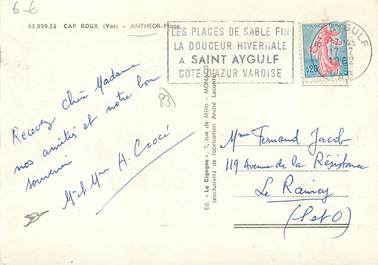 6-€
83.999.53 CAP ROUX (Var) - ANTHEOR-Plage
LES PLAGES DE SABLE FIN
LA DOUCEUR HIVERNALE
A SAINT AYGULF
COTE D'AZUR VAROISE
AYGULF
0,20
Recevez Chère Madame
nos amitiés et notre bon
souvenir
Mr et Mme A. Crocé
83
Ed. « La Cigogne », 7, rue de Millo - MONACO
(exclusivité de fabrication André Leconte)
Mme Fernand Jacob
119 Avenue de la Résistance
Le Raincy
(S et O)